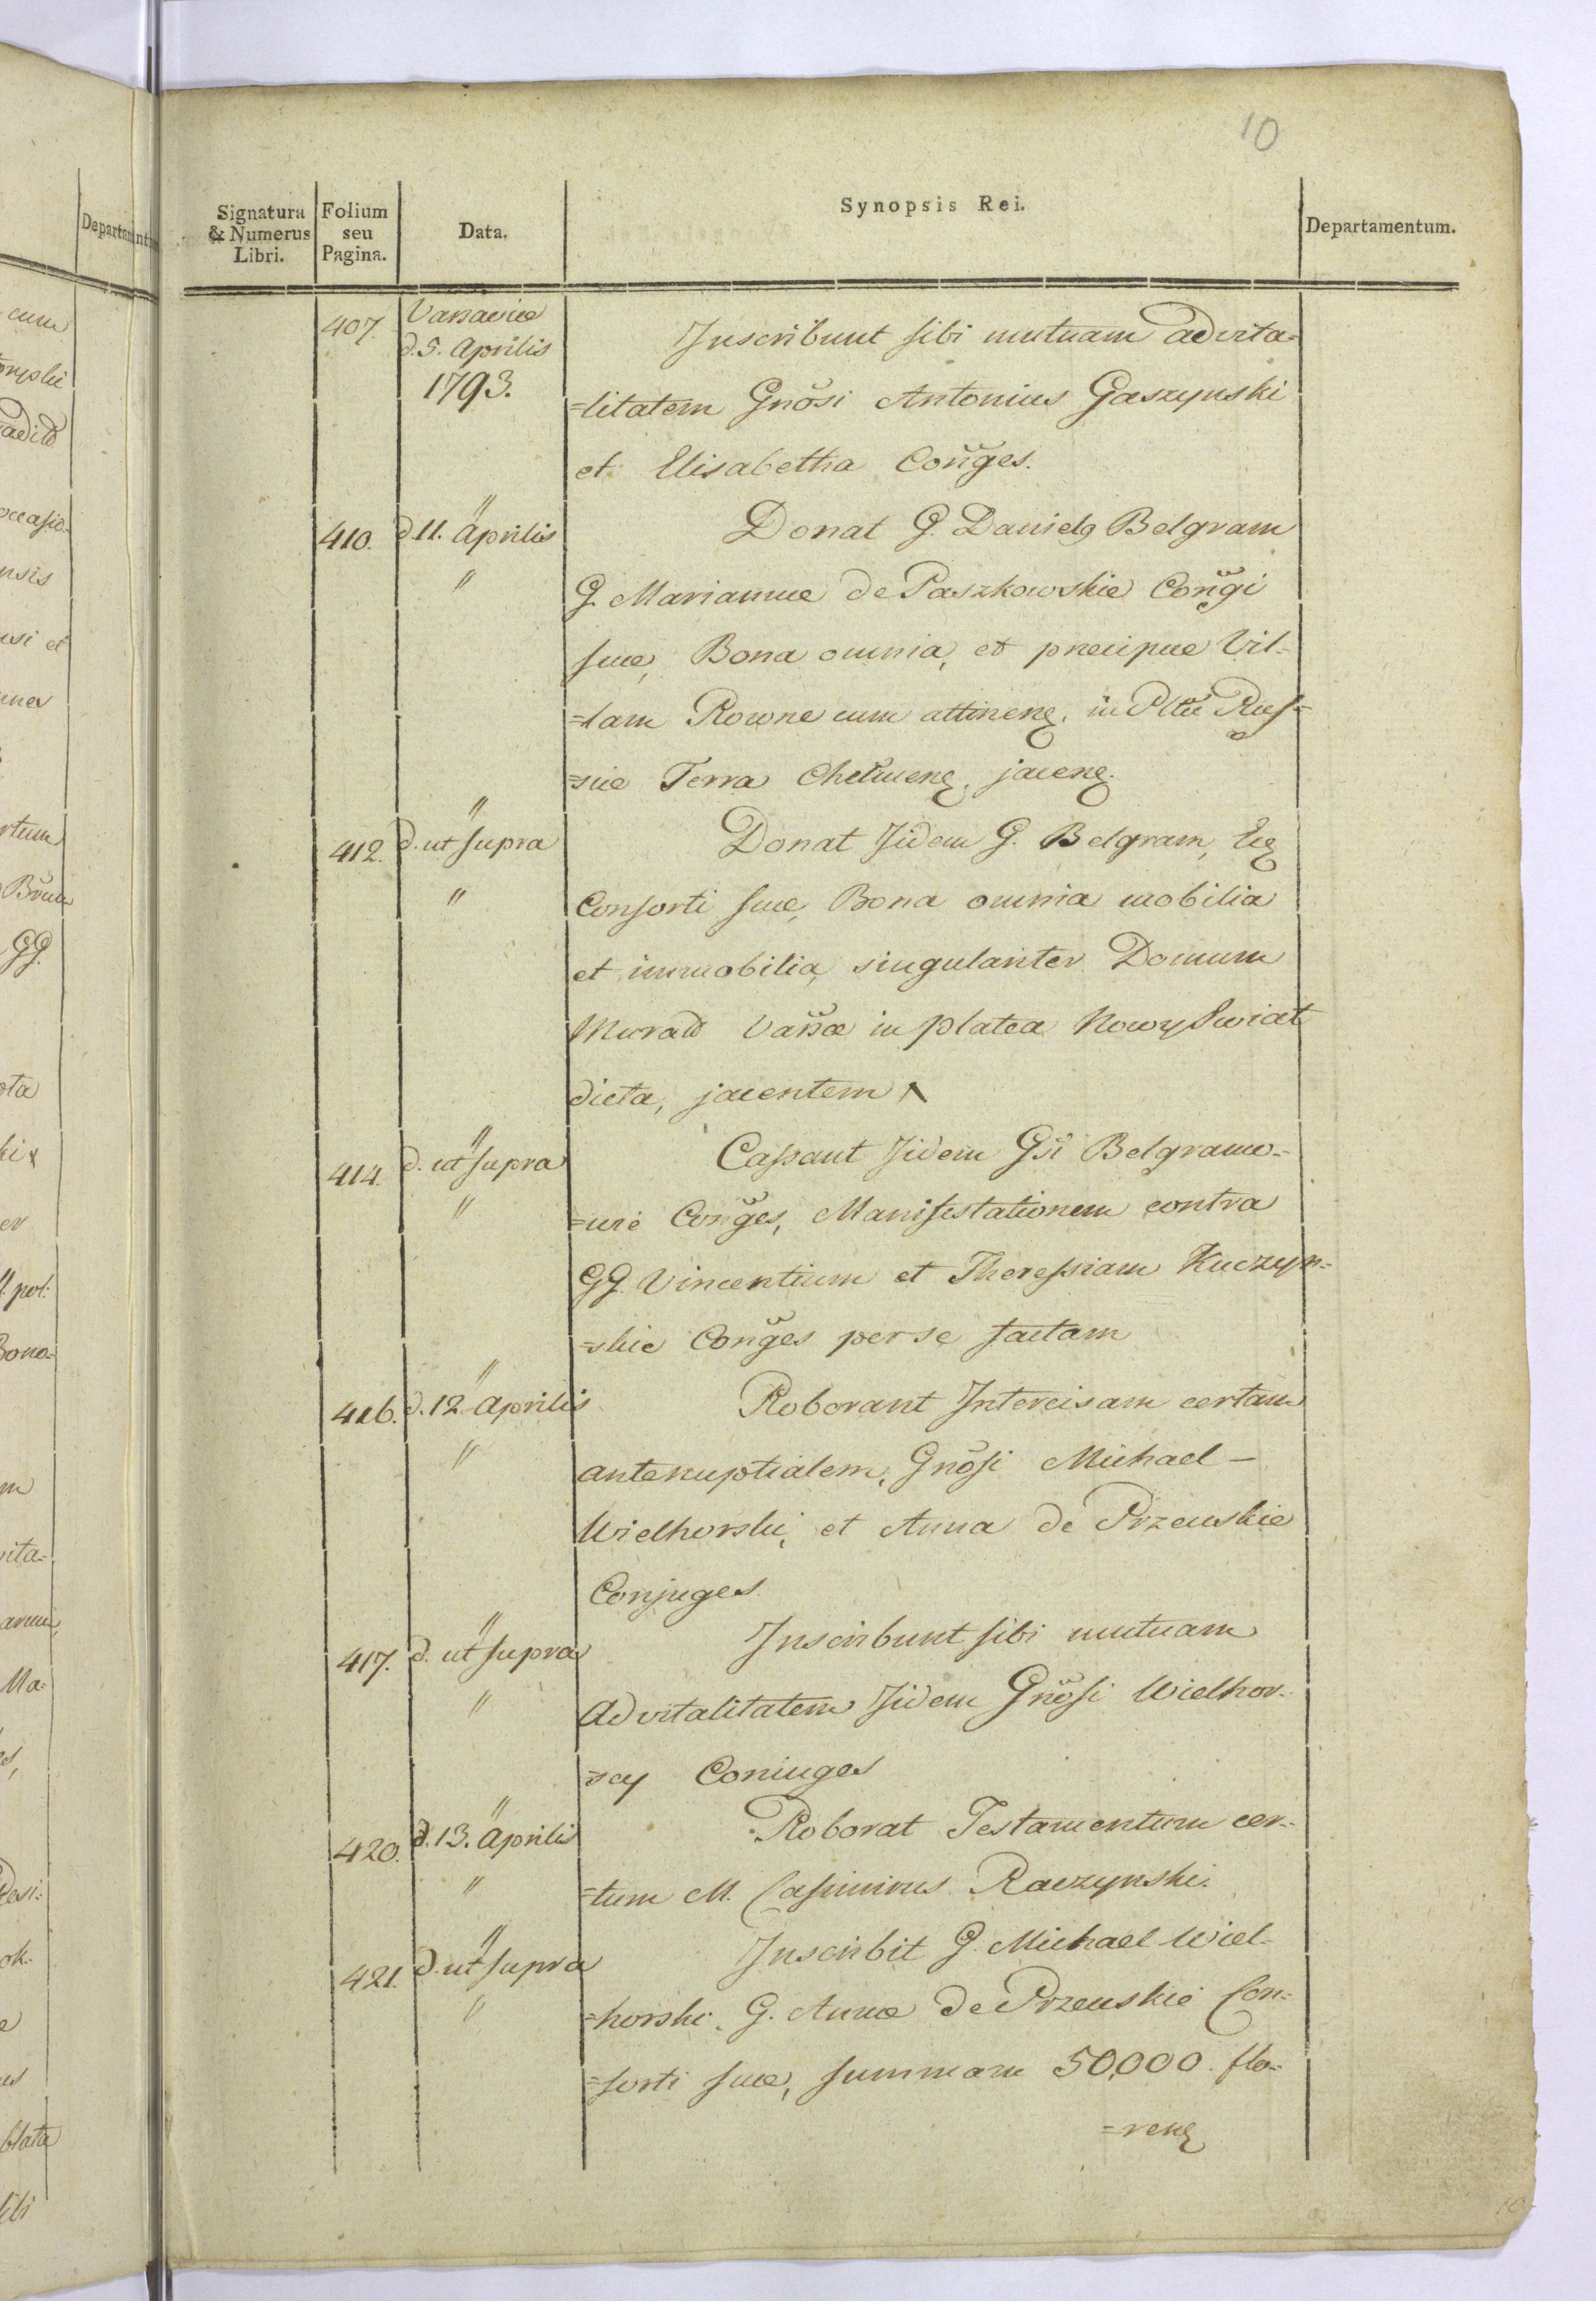 10
Signatura & Numerus Libri. Folium seu Pagina. Data. Synopsis Rei. Departamentum.
407. Varsaviæ d. 5. Aprilis 1793. Inscribunt sibi mutuam advita=
=litatem Gnõsi Antonius Gaszynski
et Elisabetha Coñges.
410. " d 11. Aprilis " Donat G. Daniel9 Belgram
G. Mariannæ de Paszkowskie Coñgi
suæ, Bona omnia, et præcipue Vil=
=lam Rowne cum attinen. in Pltu Rus=
=siæ Terra Chelmen. jacen.
412. " d. ut supra " Donat Jidem G. Belgram,
Consorti suæ, Bona omnia mobilia
et immobilia, singulariter Domum
Murat Varsæ in platea Nowy Swiat
dicta, jacentem
414. " d. ut supra " Cassant Jidem Gsi Belgramo=
=wie Coñges, Manifestationem contra
GG. Vincentium et Theressiam Kuczyn=
=skie Coñges per se factam
416. " d. 12 Aprilis " Roborant Intercisam certam
antenuptialem, Gnõsi Michael –
Wielhorski, et Anna de Przeuskie
Conjuges.
417. " d. ut supra " Inscribunt sibi mutuam
Advitalitatem Jidem Gnõsi Wielhor=
=scy Coniuges
420. " d. 13. Aprilis " Roborat Testamentum cer=
=tum M. Casimirus Raczynski.
421. " d. ut supra " Inscribit G. Michael Wiel=
=horski, G. Annæ de Przeuskie Con=
=sorti suæ, summam 50,000. flo=
=ren